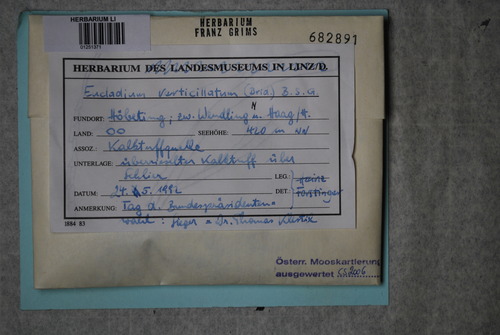 HERBARIUM LI
01251371
HERBARIUM
FRANZ GRIMS
682891
HERBARIUM DES LANDESMUSEUMS IN LINZ/D.
Eucladium verticillatum (Brid.) B.S.G.
FUNDORT: Höbeting, zw. Wendling u. Haag/H.
LAND: OÖ SEEHÖHE: 420 m NN
ASSOZ.: Kalktuffquelle
UNTERLAGE: überrieselter Kalktuff über
Schlier LEG.: Heinz
DATUM: 24. 5. 1992 DET.: Forstinger
ANMERKUNG: Tag d. Bundespräsidenten-
wahl: Dr. Thomas Klestil
1884 83
Österr. Mooskartierung
ausgewertet